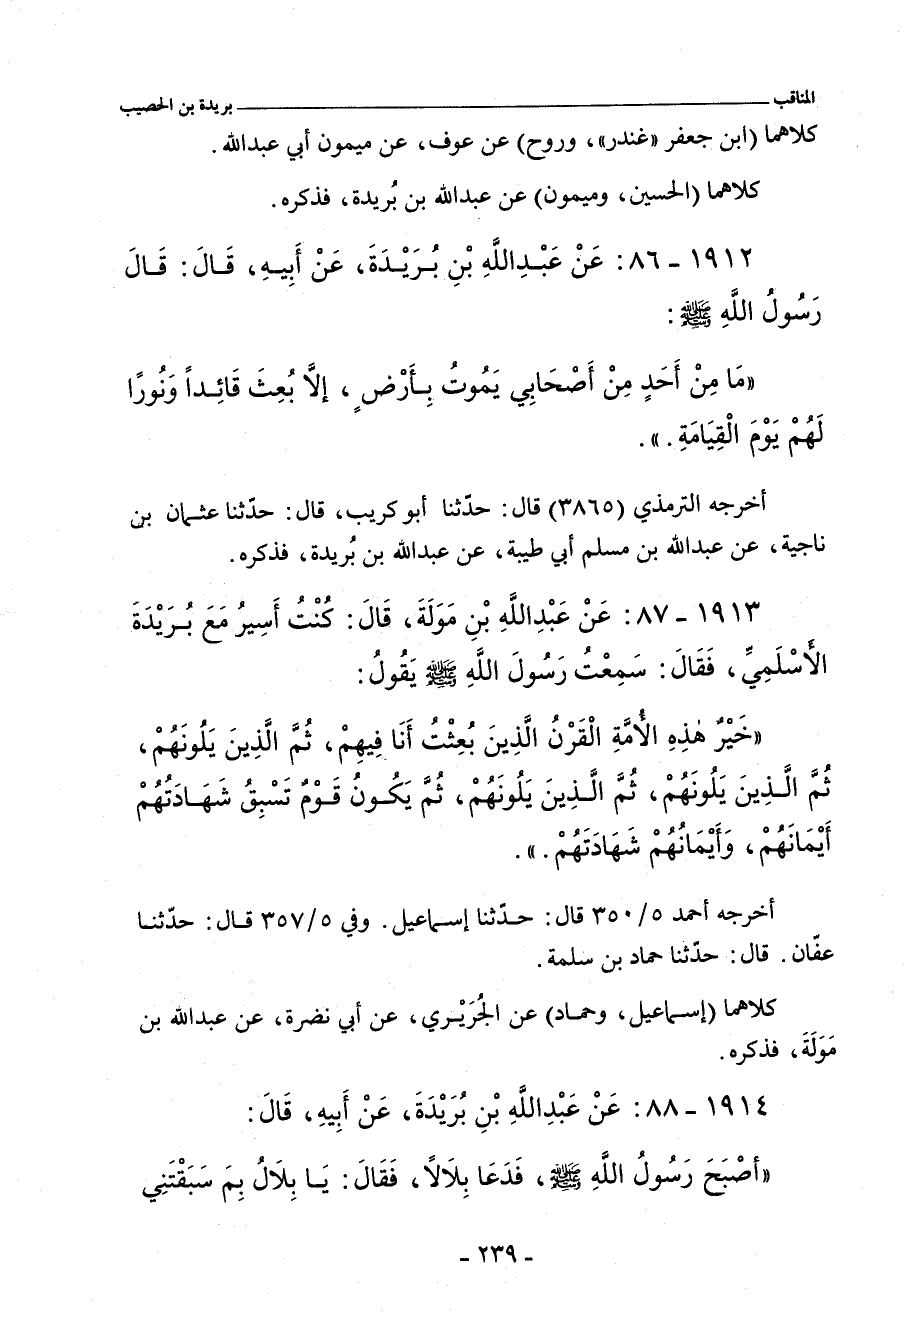 المناقب ــــــــــ بريدة بن الحصيب
كلاهما (ابن جعفر «غندر»، وروح) عن عوف، عن ميمون أبي عبدالله .
كلاهما (الحسين، وميمون) عن عبدالله بن بُريدة، فذكره.
١٩١٢ - ٨٦: عَنْ عَبْدِاللَّهِ بْنِ بُرَيْدَةَ، عَنْ أَبِيهِ، قَالَ: قَالَ
رَسُولُ اللَّهِ ﷺ:
«مَا مِنْ أَحَدٍ مِنْ أَصْحَابِي يَمُوتُ بِأَرْضٍ، إلَّا بُعِثَ قَائِداً وَنُورًا
لَهُمْ يَوْمَ الْقِيَامَةِ.».
أخرجه الترمذي (٣٨٦٥) قال: حدّثنا أبو كريب، قال: حدّثنا عثمان بن
ناجية، عن عبدالله بن مسلم أبي طيبة، عن عبدالله بن بُريدة، فذكره.
١٩١٣ - ٨٧: عَنْ عَبْدِاللَّهِ بْنِ مَوَلَةَ، قَالَ: كُنْتُ أَسِيرُ مَعَ بُرَيْدَةَ
الأَسْلَمِيِّ، فَقَالَ: سَمِعْتُ رَسُولَ اللَّهِ ﷺ يَقُولُ:
«خَيْرُ هٰذِهِ الأُمَّةِ الْقَرْنُ الَّذِينَ بُعِثْتُ أَنَا فِيهِمْ، ثُمَّ الَّذِينَ يَلُونَهُمْ،
ثُمَّ الَّذِينَ يَلُونَهُمْ، ثُمَّ الَّذِينَ يَلُونَهُمْ، ثُمَّ يَكُونُ قَوْمٌ تَسْبِقُ شَهَادَتُهُمْ
أَيْمَانَهُمْ، وَأَيْمَانُهُمْ شَهَادَتَهُمْ.».
أخرجه أحمد ٣٥٠/٥ قال: حدّثنا إسماعيل. وفي ٣٥٧/٥ قال: حدّثنا
عفّان. قال: حدّثنا حماد بن سلمة.
كلاهما (إسماعيل، وحماد) عن الجُرَيْري، عن أبي نضرة، عن عبدالله بن
مَوَلَةَ، فذكره.
١٩١٤ - ٨٨: عَنْ عَبْدِاللَّهِ بْنِ بُرَيْدَةَ، عَنْ أَبِيهِ، قَالَ:
«أصْبَحَ رَسُولُ اللَّهِ ﷺ، فَدَعَا بِلَالاً، فَقَالَ: يَا بِلَالُ بِمَ سَبَقْتَنِي
- ٢٣٩ -